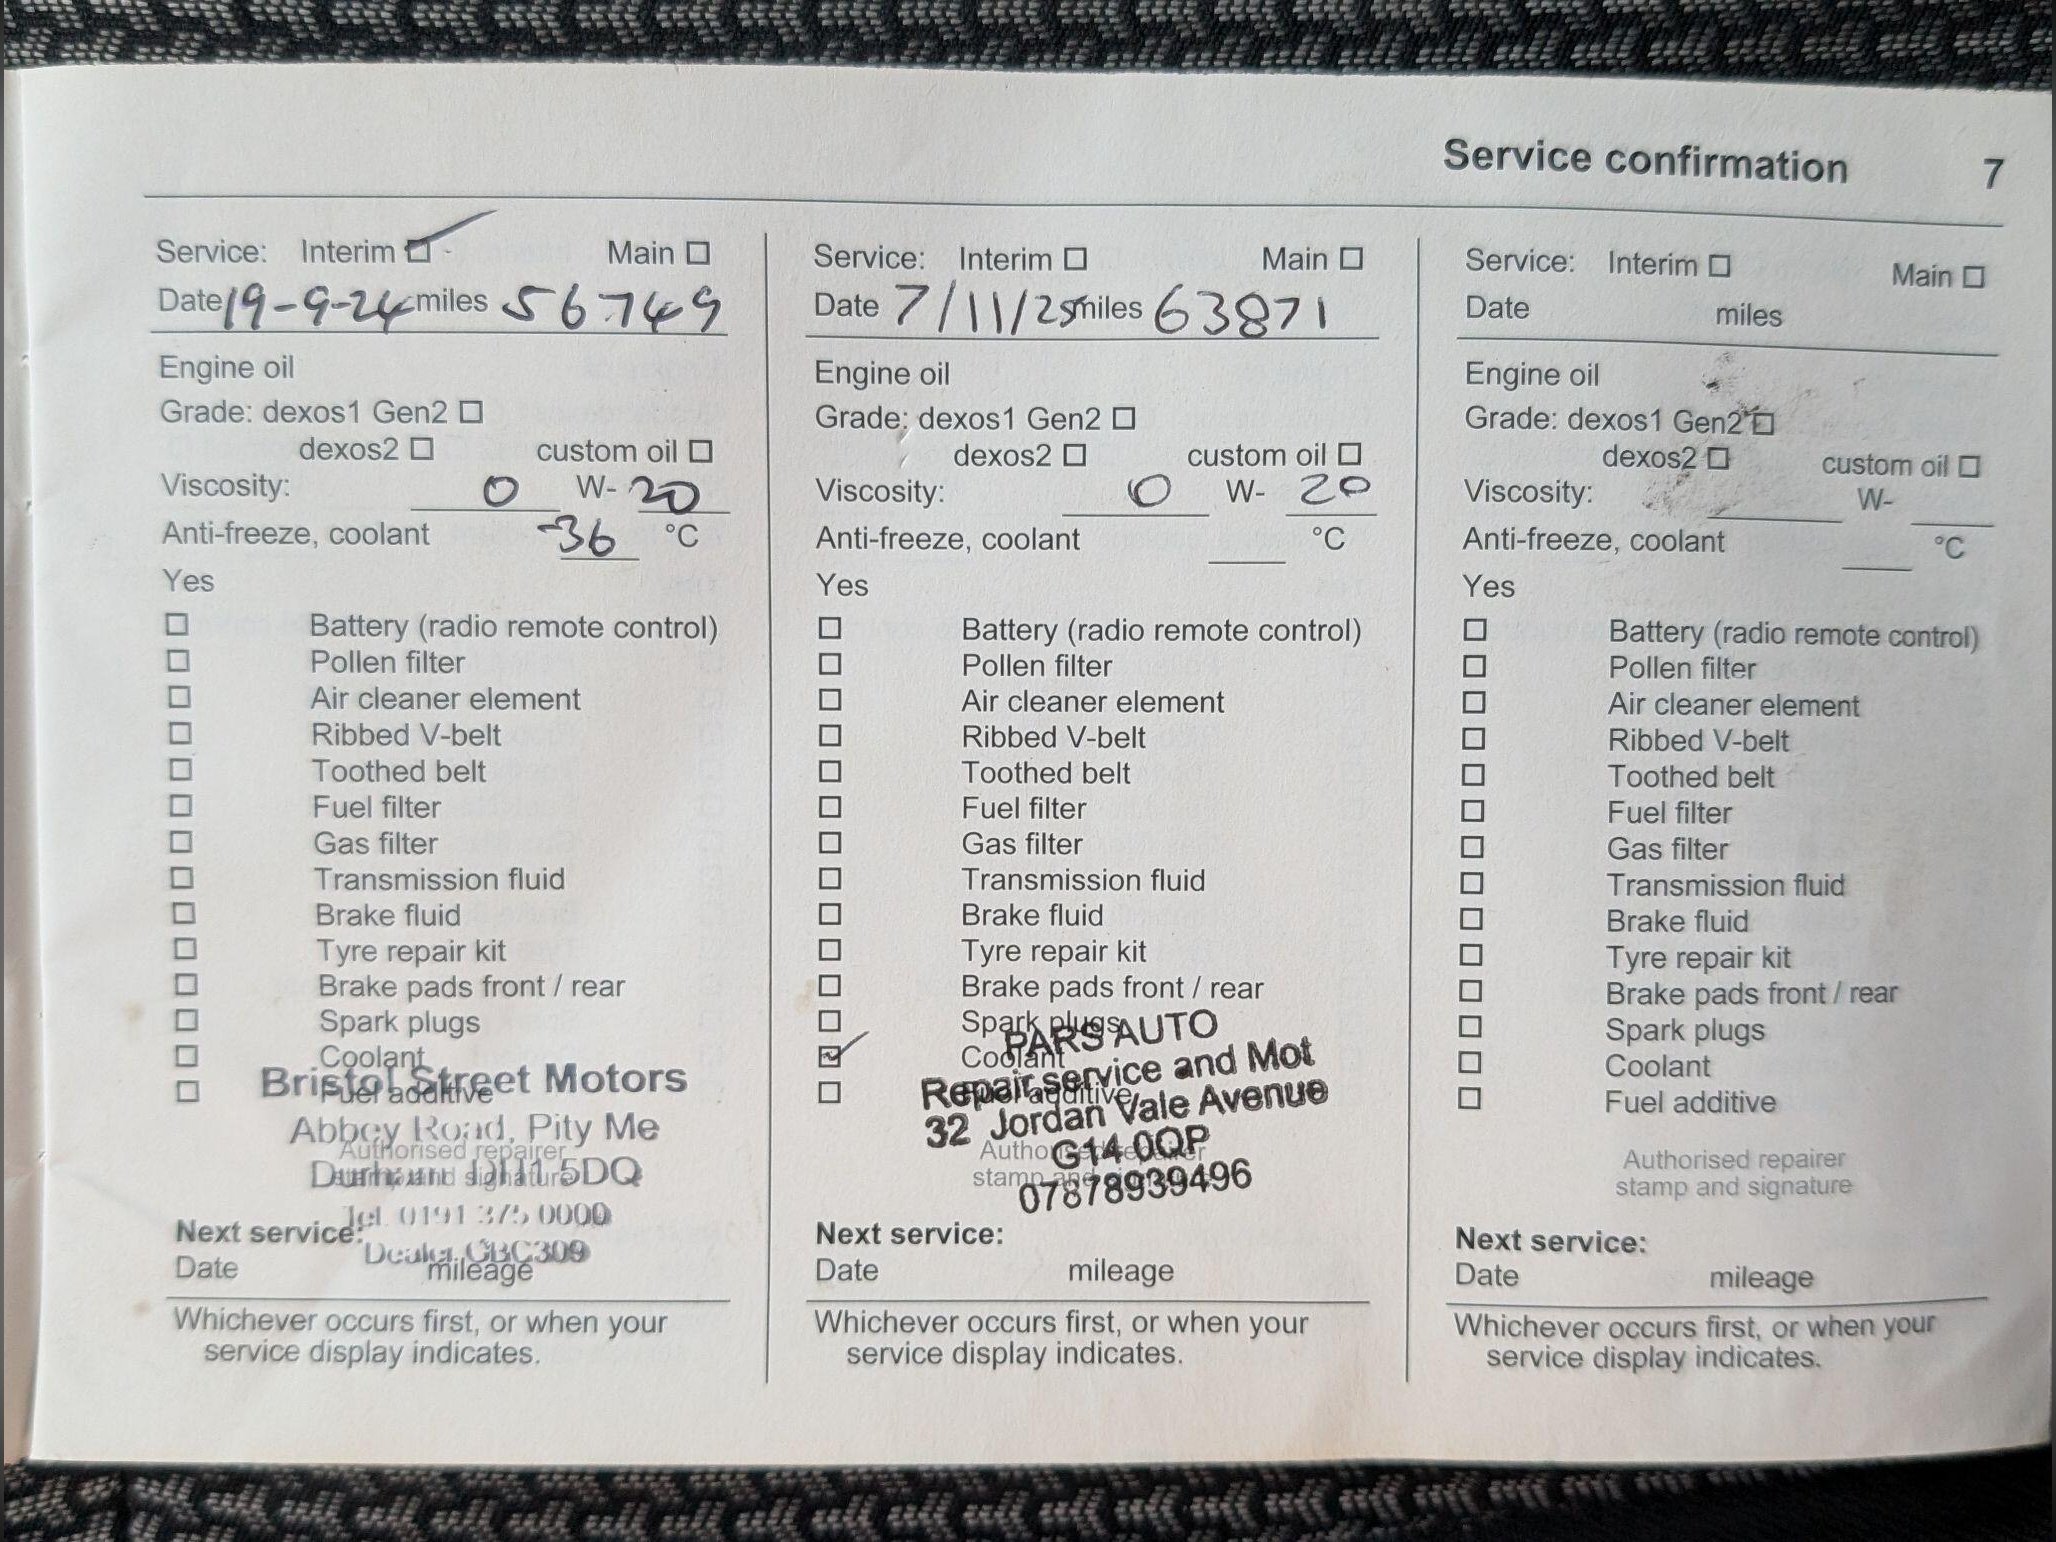 Service confirmation 7
Service: Interim Main
Date 19-9-24 miles 56749
Engine oil
Grade: dexos1 Gen2
dexos2 custom oil
Viscosity: 0 W- 20
Anti-freeze, coolant -36 °C
Yes
Battery (radio remote control)
Pollen filter
Air cleaner element
Ribbed V-belt
Toothed belt
Fuel filter
Gas filter
Transmission fluid
Brake fluid
Tyre repair kit
Brake pads front / rear
Spark plugs
Coolant
Fuel additive
Bristol Street Motors
Abbey Road, Pity Me
Durham DH1 5DQ
Tel. 0191 375 0000
Dealer CBC309
Authorised repairer
stamp and signature
Next service:
Date mileage
Whichever occurs first, or when your
service display indicates.
Service: Interim Main
Date 7/11/25 miles 63871
Engine oil
Grade: dexos1 Gen2
dexos2 custom oil
Viscosity: 0 W- 20
Anti-freeze, coolant °C
Yes
Battery (radio remote control)
Pollen filter
Air cleaner element
Ribbed V-belt
Toothed belt
Fuel filter
Gas filter
Transmission fluid
Brake fluid
Tyre repair kit
Brake pads front / rear
Spark plugs
Coolant
Fuel additive
PARS AUTO
Repair service and Mot
32 Jordan Vale Avenue
G14 0QP
07878939496
Authorised repairer
stamp and signature
Next service:
Date mileage
Whichever occurs first, or when your
service display indicates.
Service: Interim Main
Date miles
Engine oil
Grade: dexos1 Gen2
dexos2 custom oil
Viscosity: W-
Anti-freeze, coolant °C
Yes
Battery (radio remote control)
Pollen filter
Air cleaner element
Ribbed V-belt
Toothed belt
Fuel filter
Gas filter
Transmission fluid
Brake fluid
Tyre repair kit
Brake pads front / rear
Spark plugs
Coolant
Fuel additive
Authorised repairer
stamp and signature
Next service:
Date mileage
Whichever occurs first, or when your
service display indicates.